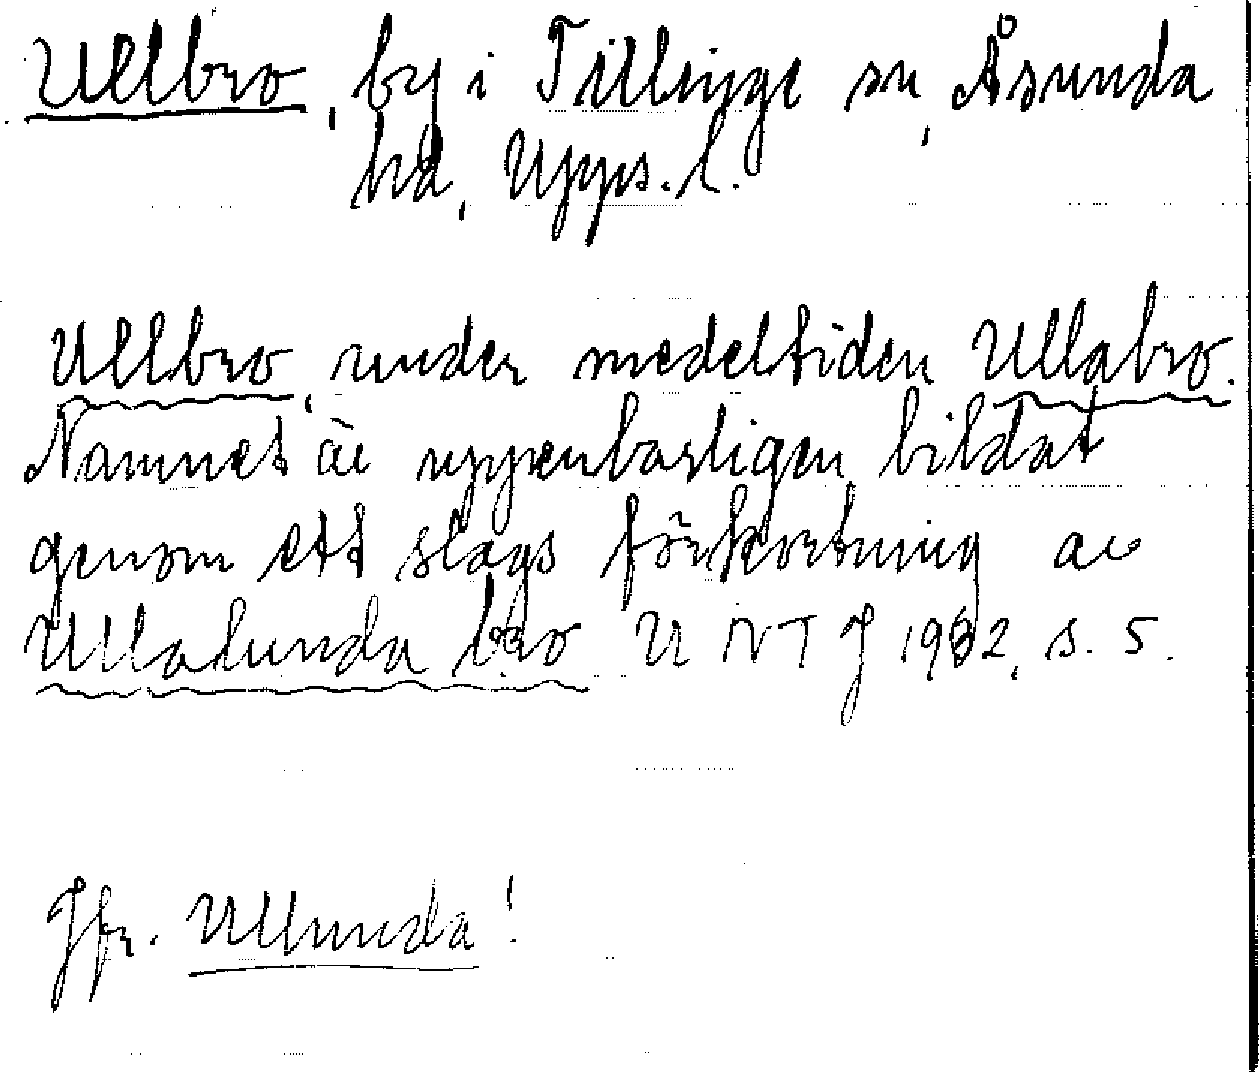 Ullbro, by i Tillinge sn, Åsunda
hd, Upps. l.
Ullbro, under medeltiden Ullabro.
Namnet är uppenbarligen bildat
genom ett slags förkortning av
Ullalunda bro U NT J 1932, s. 5.
Jfr. Ullunda!